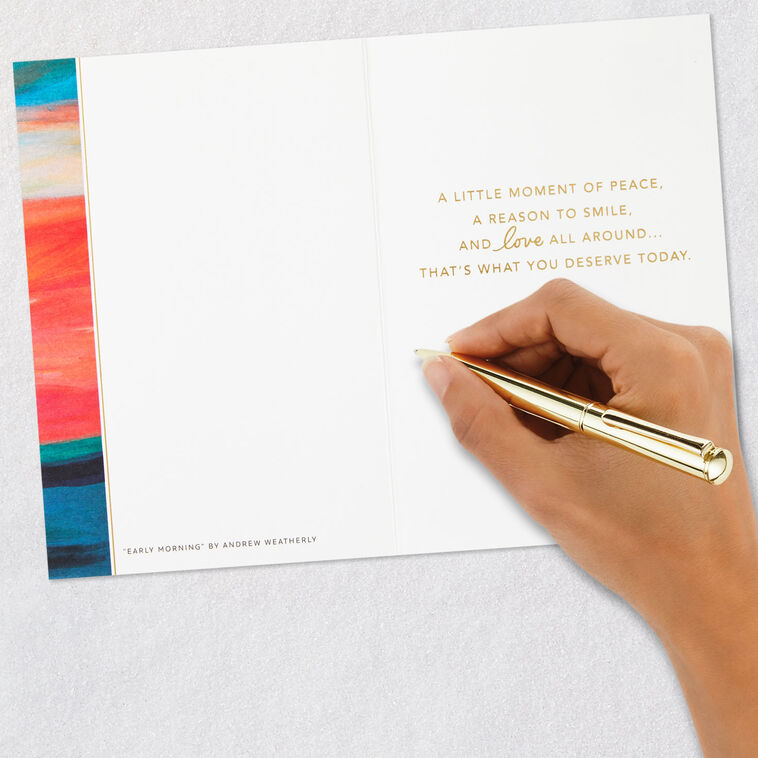 "EARLY MORNING" BY ANDREW WEATHERLY
A LITTLE MOMENT OF PEACE,
A REASON TO SMILE,
AND love ALL AROUND...
THAT'S WHAT YOU DESERVE TODAY.